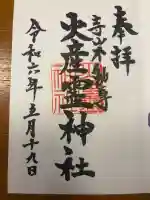 奉拝
火産霊神社
令和六年五月十九日